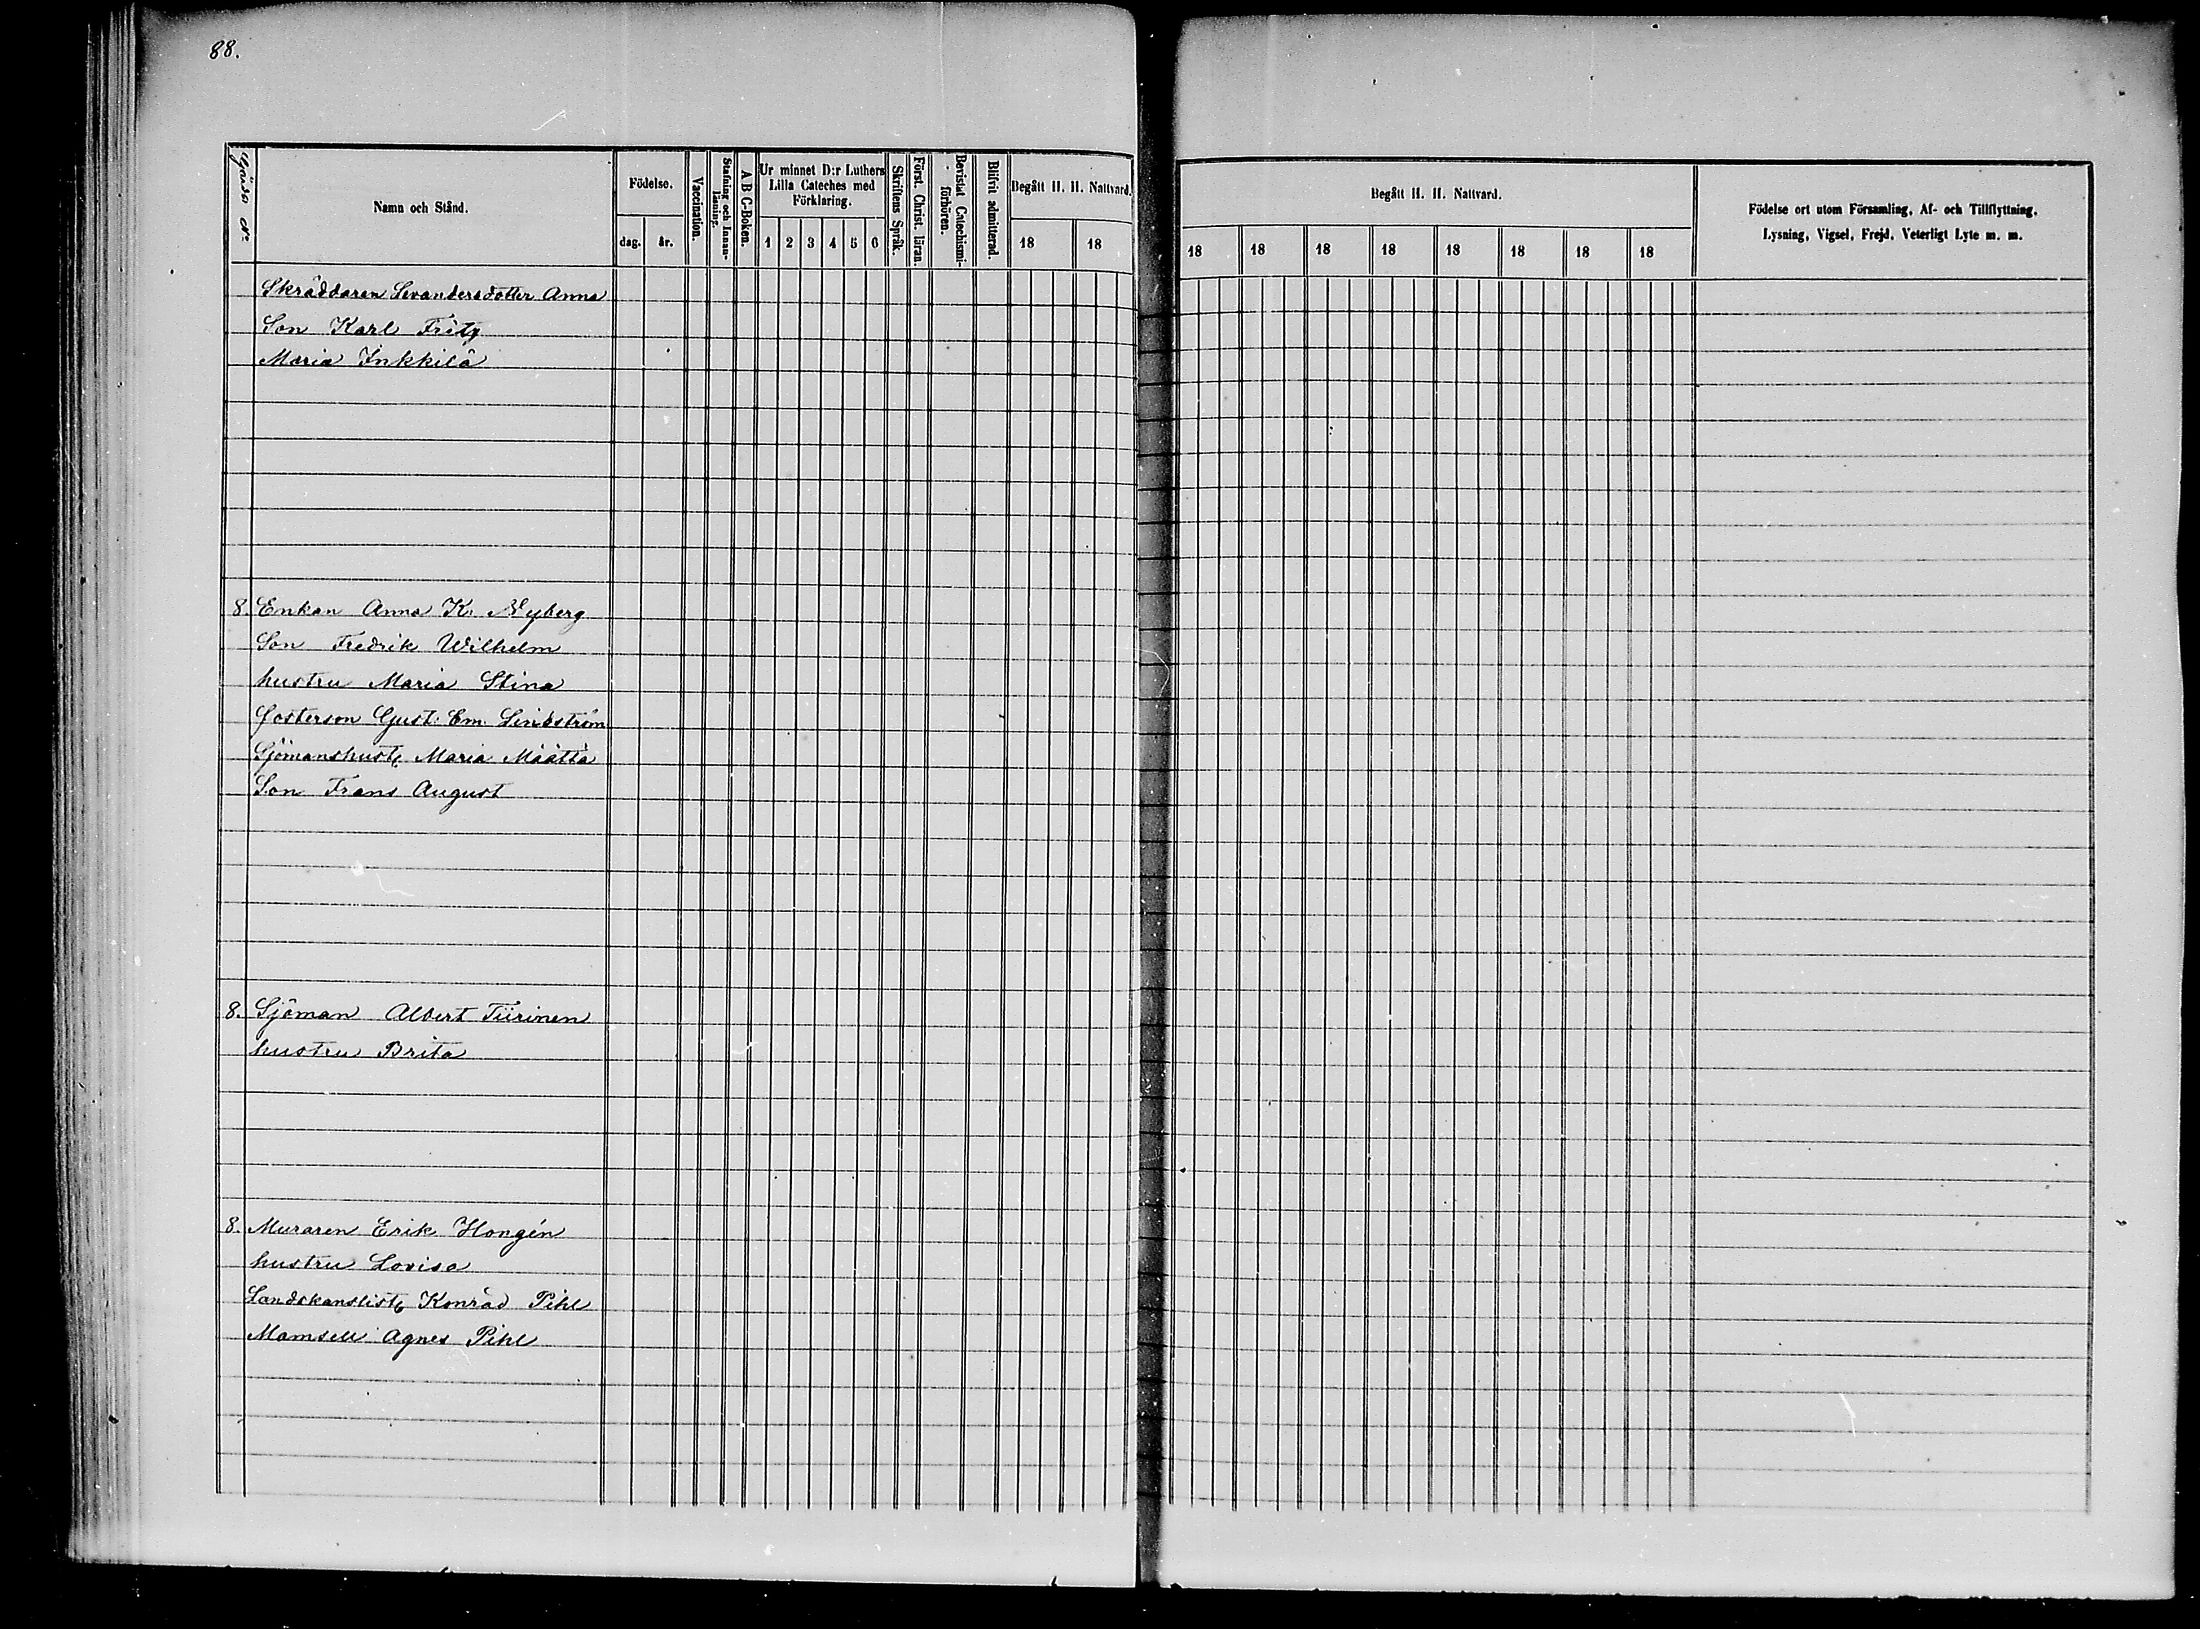 88.
Gårds No
Namn och Stånd.
Födelse.
dag.
år.
Vaccination.
Stafning och Innan-
läsning.
A B C-Boken.
Ur minnet D:r Luthers
Lilla Cateches med
Förklaring.
1 2 3 4 5 6
Skriftens Språk.
Först. Christ. läran.
Bevistat Catechismi-
förhören.
Blifvit admitterad.
Begått H. H. Nattvard.
18 18
Begått H. H. Nattvard.
18 18 18 18 18 18 18 18
Födelse ort utom Församling, Af- och Tillflyttning,
Lysning, Vigsel, Frejd, Veterligt Lyte m. m.
Skräddaren Levandersdotter Anna
Son Karl Fritz
Maria Inkkilä
8. Enkan Anna K. Nyberg
Son Fredrik Wilhelm
hustru Maria Stina
Fosterson Gust. Em. Lindström
Sjömanshust. Maria Määttä
Son Frans August
8. Sjöman Albert Tiirinen
hustru Brita
8. Muraren Erik Hongén
hustru Lovisa
Landskanslist. Konrad Pihl
Mamsell Agnes Pihl